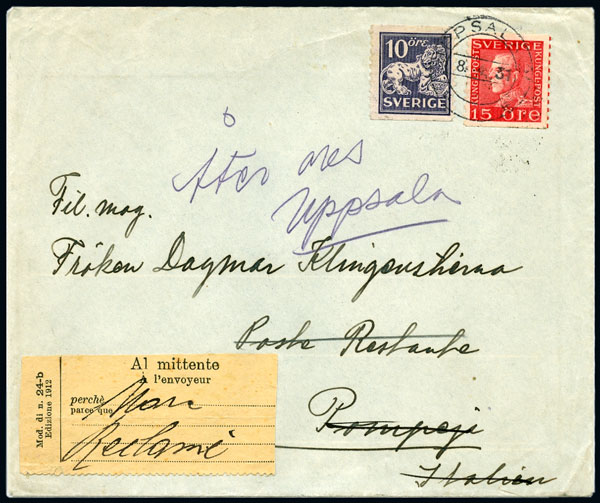 10 öre
SVERIGE
UPSAL
8
31
SVERIGE
KUNGSPOST
KUNGSPOST
15 öre
Åter
Uppsala
Fil. mag.
Fröken Dagmar Klingenstierna
Poste Restante
Pompeji
Italien
Mod. di n. 24-b
Edizione 1912
Al mittente
à l'envoyeur
perchè
parce que
Non
Réclamé